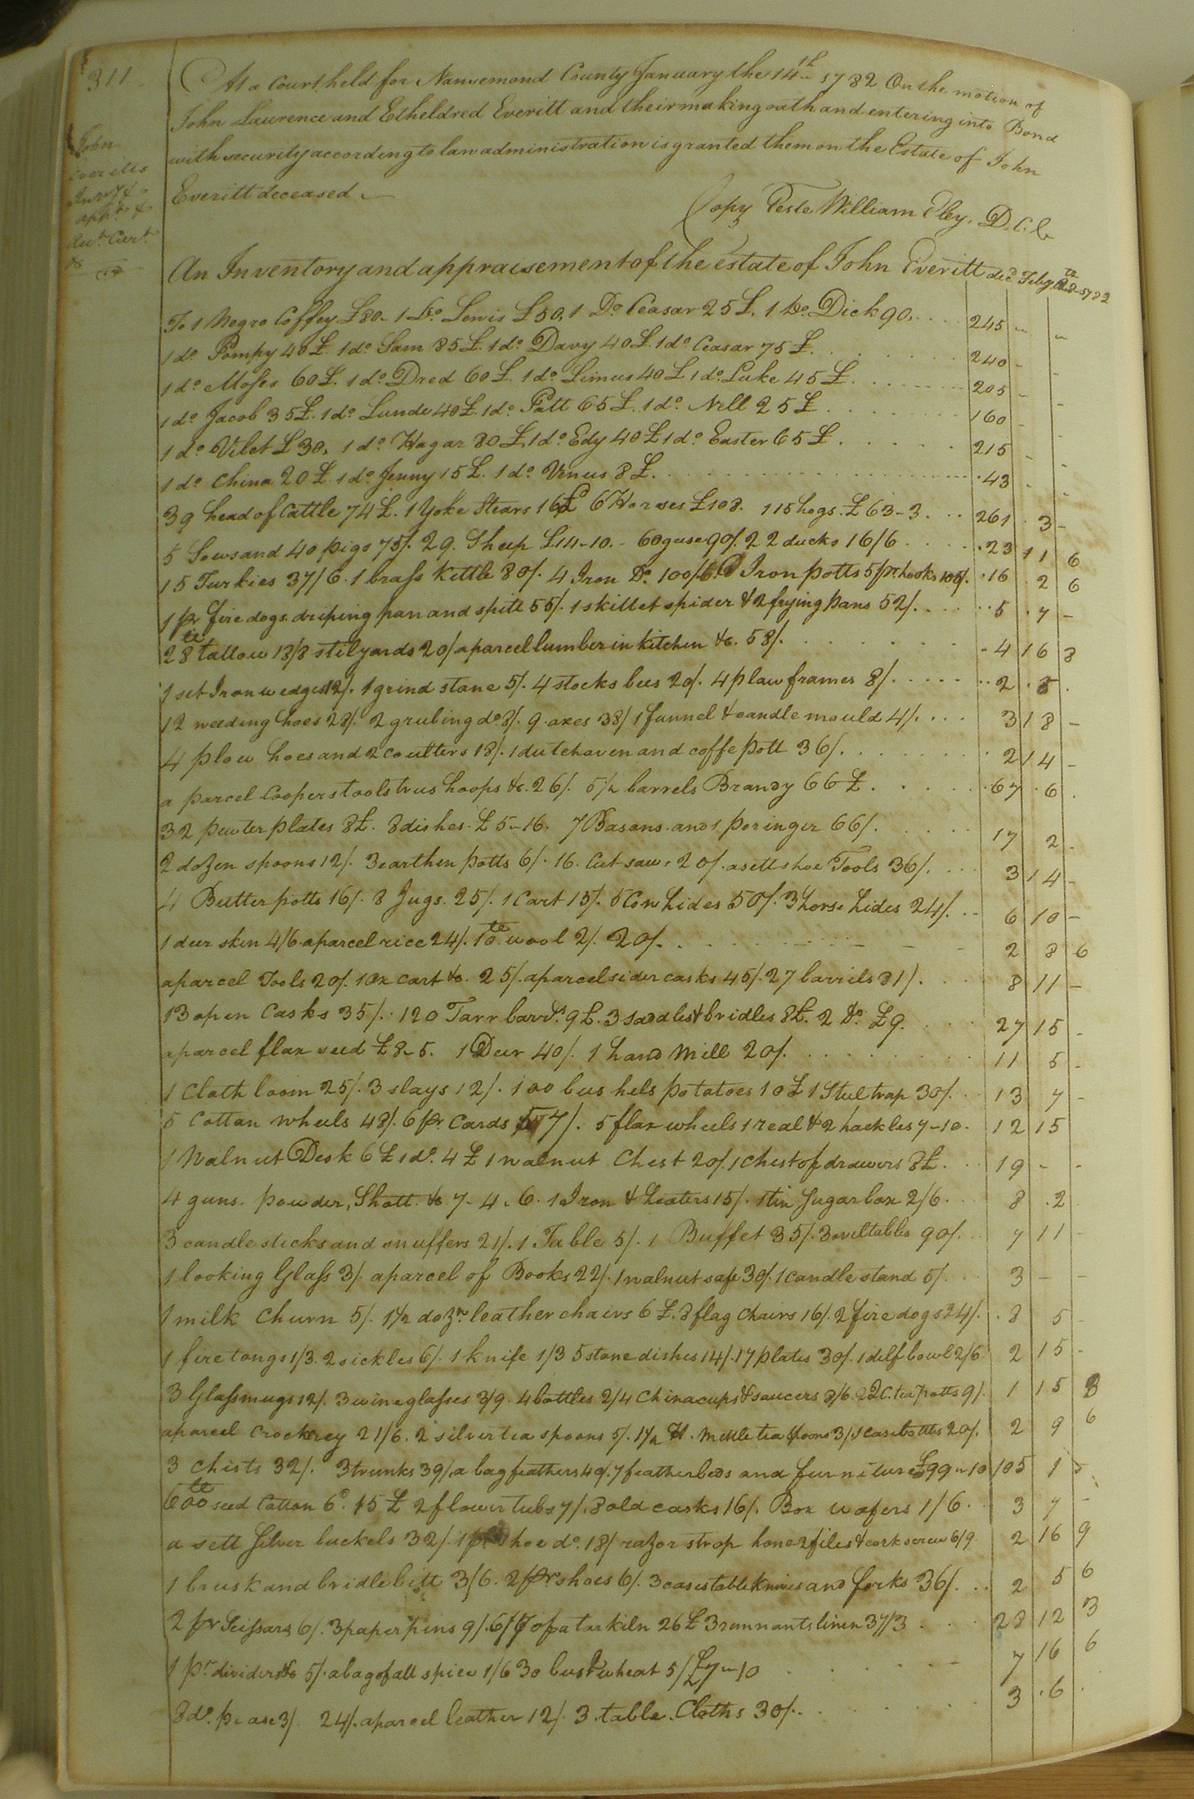 311
At a Court held for Nansemond County January the 14th 1782 On the motion of
John Laurence and Etheldred Everitt and their making oath and entering into Bond
with security according to law administration is granted them on the Estate of John
Everitt deceased
Copy Teste William Eley. D.C.C.
John
Everitts
An Inventory and appraisement of the estate of John Everitt decd Feby 28th 1782
To 1 Negro Coffey £80. 1 Do. Lewis £50. 1 Do Ceasar 25£. 1 Do. Dick 90. 245 - -
1 do Pompy 40£. 1 do Sam 85£. 1 do. Davy 40£. 1 do Ceasar 75£. 240 - -
1 do Moses 60£. 1 do. Dred 60£. 1 do. Limus 40£ 1 do. Luke 45£. 205 - -
1 do Jacob 35£. 1 do. Lunde 40£ 1 do. Patt 65£. 1 do. Nell 25£ 160 - -
1 do. Vilet £30. 1 do. Hagar 80£. 1 do. Edy 40£ 1 do. Easter 65£. 215 - -
1 do. China 20£. 1 do. Jenny 15£. 1 do. Venus 8£. 43 - -
39 head of Cattle 74£. 1 Yoke Stears 16£ 6 Horses £108. 115 hogs. £63-3. 261 . 3 -
5 Sows and 40 pigs 75/. 29. Sheep £14-10. - 60 guse 90/. 22 ducks 16/6 23 11 6
15 Turkies 37/6. 1 brass Kettle 80/. 4 Iron Do. 100/6. Iron potts 5 pr hooks 105/. 16 2 6
1 pr fire dogs. driping pan and spitt 55/. 1 skillet spider & 2 frying pans 52/. 5 . 7 -
28 lb tallow 18/8 stilyards 20/ a parcel lumber in kitchen &c. 58/. 4 16 8
1 set Iron wedges 12/. 1 grind stone 5/. 4 stocks bees 20/. 4 plaw frames 8/. 2 . 5 .
12 weeding hoes 28/. 2 grubing do 8/. 9. axes 38/ 1 funnel & candle mould 4/. 3 18 -
4 plow hoes and 2 coulters 18/. 1 dutch oven and coffe pott 36/. 2 14 -
a parcel Coopers tools trus hoops &c. 26/. 5 1/2 barrels Brandy 66£. 67 . 6 .
32 pewter plates 8£. 8 dishes. £5-16. 7 Basons. and 1 poringer 66/. 17 2 .
2 dozen spoons 12/. 3 earthen potts 6/. 16. Cut saw. 20/. a sett shoe Tools 36/. 3 14 -
4 Butter potts 16/. 8 Jugs. 25/. 1 Cart 15/. 5 Cow hides 50/. 3 horse hides 24/. 6 10 -
1 deer skin 4/6. a parcel rice 24/. 10 lb wool 2/. 20/. 2 8 6
a parcel Tools 20/. 1 ox cart &c. 25/. a parcel sider casks 45/. 27 barrils 81/. 8 11 -
13 open Casks 35/. 120 Tarr barrls. 9£. 3 saddles & bridles 8£. 2 Do £9. 27 15 -
a parcel flax seed £8-5. 1 Deer 40/. 1 hand mill 20/. 11 5 -
1 Cloth loom 25/. 3 slays 12/. 100 bushels potatoes 10£ 1 Steel trap 30/. 13 7 -
5 Cotton wheels 48/. 6 pr Cards 57/. 5 flax wheels 1 real & 2 hackles 7-10. 12 15
1 Walnut Desk 6£ 1 do. 4£ 1 walnut Chest 20/. 1 chest of drawers 8£. 19 - -
4 guns. powder, Shott &c 7-4.6. 1 Iron & heaters 15/. 1 tin Sugar box 2/6. 8 . 2
3 candle sticks and snuffers 21/. 1 Table 5/. 1 Buffet 35/. 3 ovel tables 90/. 7 11 -
1 looking Glass 3/. a parcel of Books 22/. 1 walnut safe 30/. 1 candle stand 5/. 3 - -
1 milk Churn 5/. 1 1/2 dozn leather chairs 6£. 8 flag Chairs 16/. 2 fire dogs 24/. 8 5 -
1 fire tongs 1/3. 2 sickles 6/. 1 knife 1/3 5 stone dishes 14/. 17 plates 30/. 1 delf bowl 2/6 2 15 -
3 Glass mugs 12/. 3 wine glasses 3/9. 4 bottles 2/4 China cups & saucers 8/6. 2 C. tea potts 9/. 1 15 8
a parcel Crockrey 21/6. 2 silver tea spoons 5/. 1 1/2 H. Mettle tea spoons 3/. 1 case bottles 20/. 2 9 6
3 Chists 32/. 3 trunks 39/. a bag feathers 40/. 7 feather beds and furniture £99-10 105 1 -
600 lb seed Cotton 6d. 15£ 2 flower tubs 7/. 8 old casks 16/. Box wafers 1/6. 3 7 -
a sett Silver buckels 32/. 1 pr shoe do. 18/ razor strop hone 2 files & cork screw 6/9 2 16 9
1 brusk and bridle bitt 3/6. 2 pr shoes 6/. 3 cases table knives and forks 36/. 2 5 6
2 pr Scissars 6/. 3 paper pins 9/. of a tar kiln 26£ 3 remnants linen 37/3 28 12 3
1 pr dividers &c 5/. a bag of all spice 1/6 30 bush wheat 5/ £7-10 7 16 6
8 do. pease 3/. 24/. a parcel leather 12/. 3 table Cloths 30/. 3 . 6 .